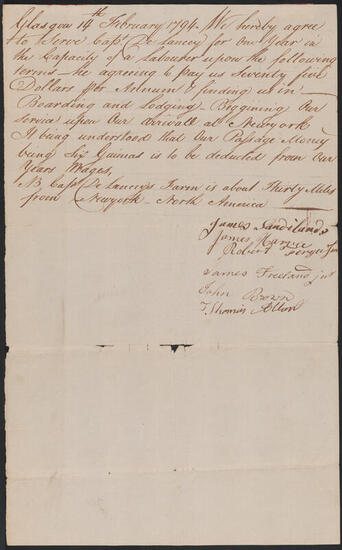 Glasgow 14th February 1794. We hereby agree
to Serve Capt. De Lancey for One Year in
the Capacity of a Labourer upon the following
terms — he agreeing to pay us Seventy five
Dollars per Annum & finding us in —
Boarding and Lodging — Biggining Our
Service upon Our Arrivall at Newyork
It being understood that Our Passage Money
being Six Guineas is to be deducted from Our
Years Wages,
NB Capt. De Lancey's Farm is about Thirty Miles
from Newyork North America
James Sandilands
James
Robert
James Freeland
John Brown
Thomas